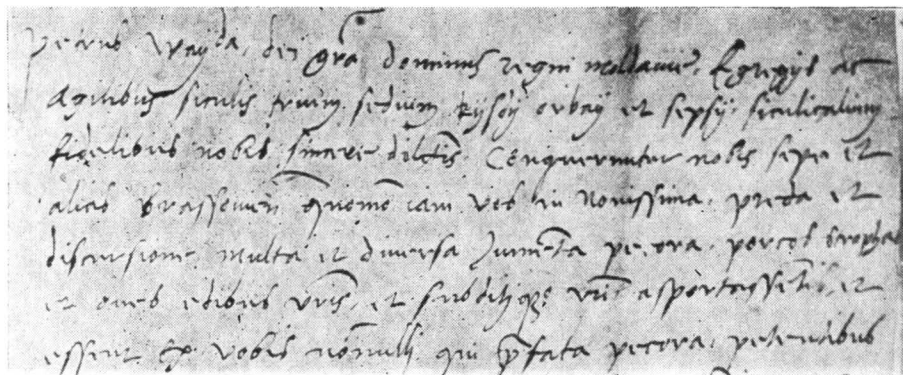 Petrus Wayda, dei gra dominus regni moldavie. Egregys ac
Agilibus siculis trium sedium kysdy orbay et sepsy siculicalium
fidelibus nobis sincere dilctis. Conqueruntur nobis sepe et
alias brassovien quomo iam vos in novissima preda et
discursione multa et diversa Jumenta pecora porcos
et oves edibus vris et asportassetis et
essent ex vobis nonnulli qui pfata pecora petentibus